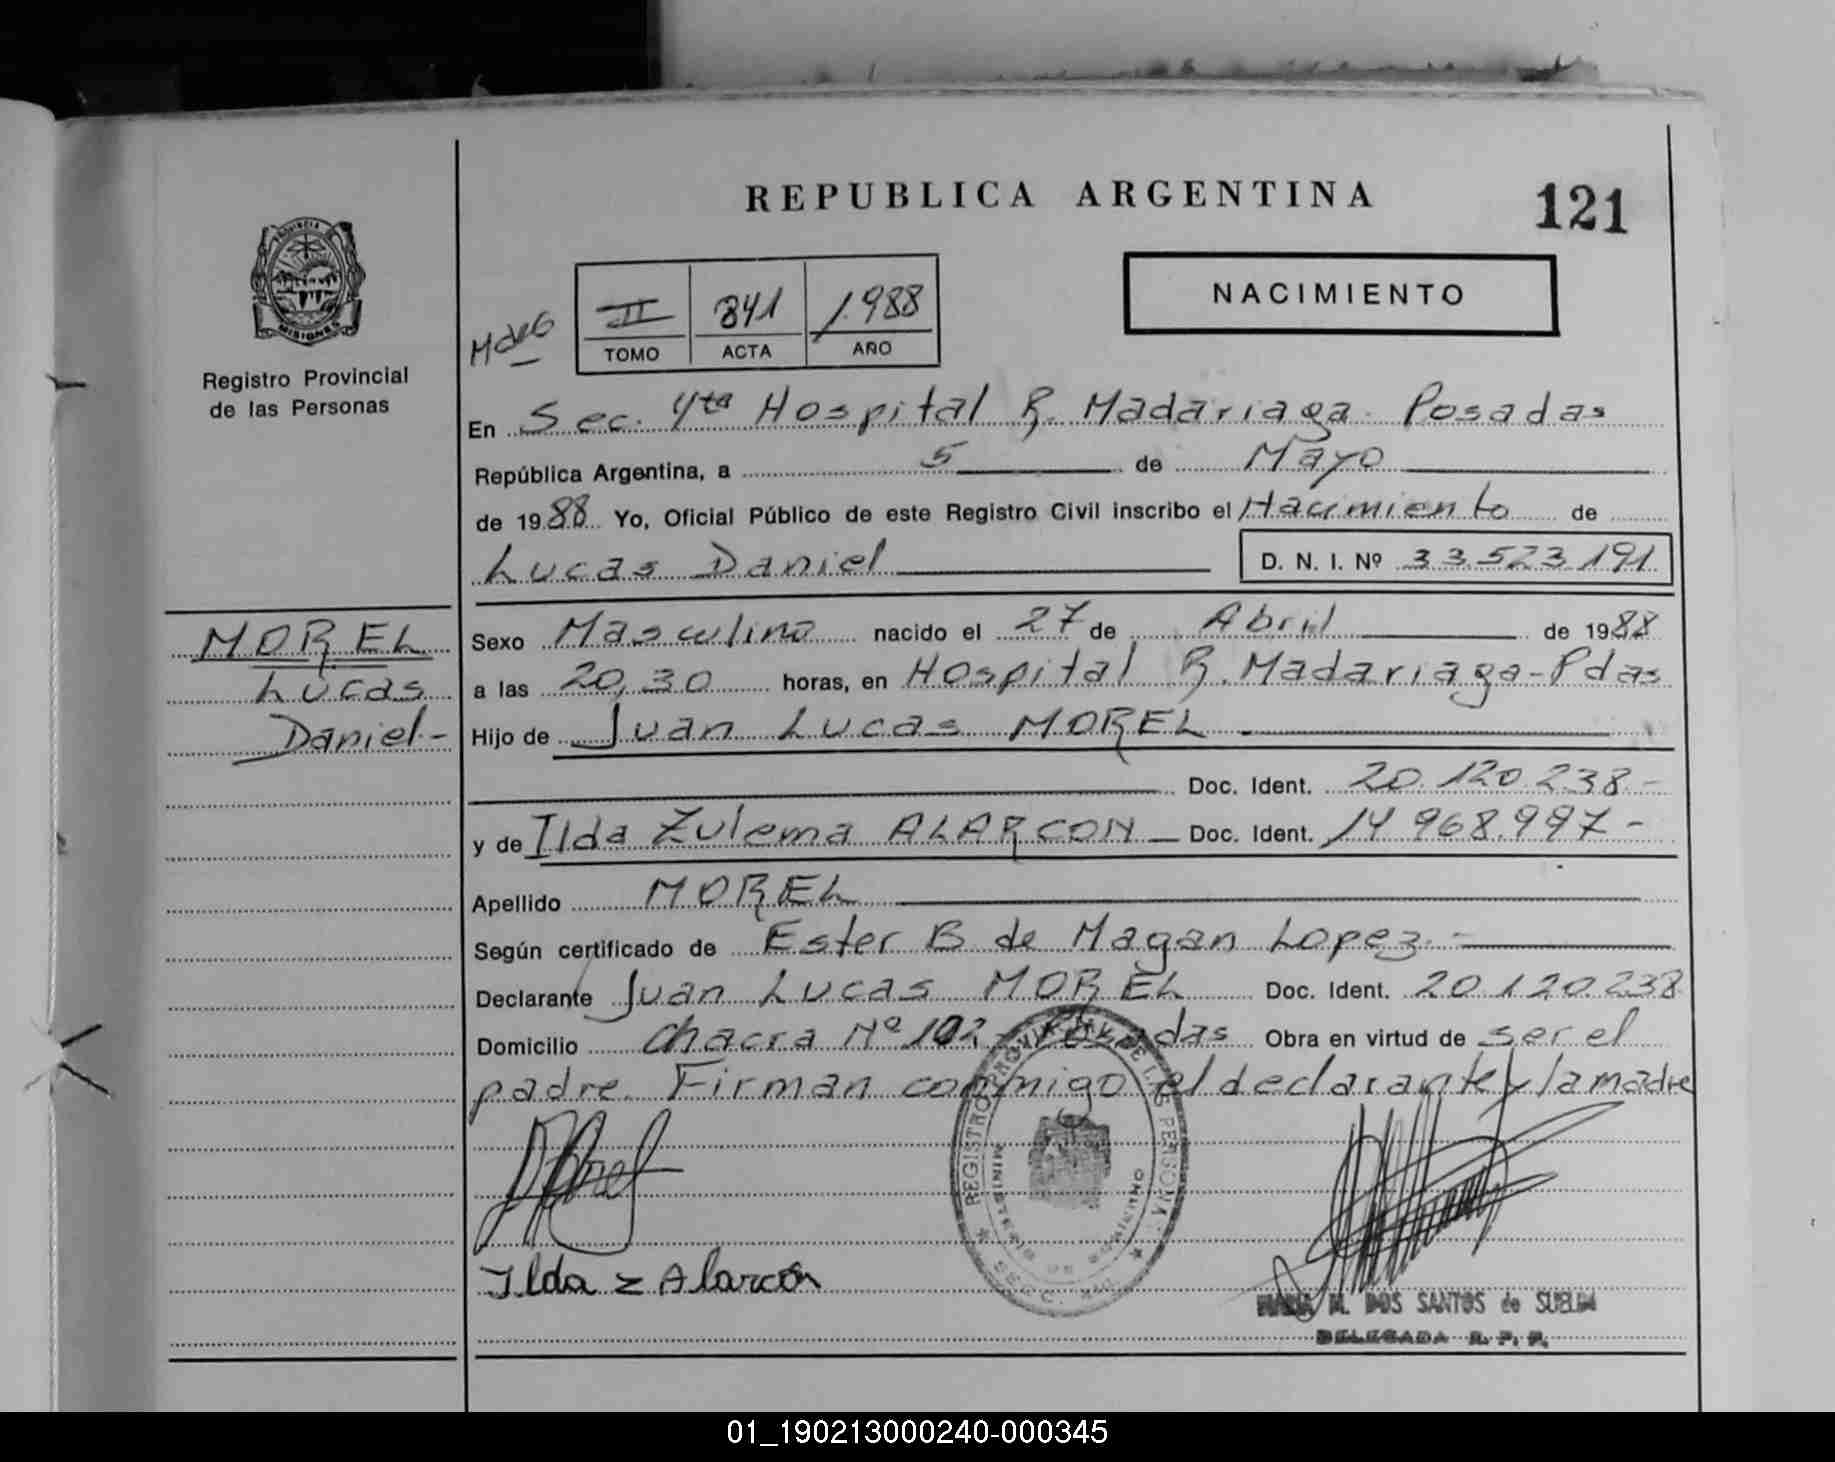 REPUBLICA ARGENTINA
121
NACIMIENTO
PROVINCIA DE
MISIONES
Registro Provincial
de las Personas
MdeG
II 841 1.988
TOMO ACTA AÑO
En Sec. 4ta Hospital R. Madariaga. Posadas
República Argentina, a 5 de Mayo
de 1988 Yo, Oficial Público de este Registro Civil inscribo el Nacimiento de
Lucas Daniel D. N. I. Nº 33.523.191
MOREL
Lucas
Daniel-
Sexo Masculino nacido el 27 de Abril de 1988
a las 20,30 horas, en Hospital R. Madariaga-Pdas
Hijo de Juan Lucas MOREL
Doc. Ident. 20.120.238-
y de Ilda Zulema ALARCON Doc. Ident. 14 968.997-
Apellido MOREL
Según certificado de Ester B de Magan Lopez.-
Declarante Juan Lucas MOREL Doc. Ident. 20.120.238
Domicilio Chacra Nº 102- Posadas Obra en virtud de ser el
padre. Firman conmigo el declarante y la madre
REGISTRO PROVINCIAL DE LAS PERSONAS
MINISTERIO DE GOBIERNO
Ilda Z Alarcón
MARIA M. DOS SANTOS de SUELDI
DELEGADA R. P. P.
01_190213000240-000345